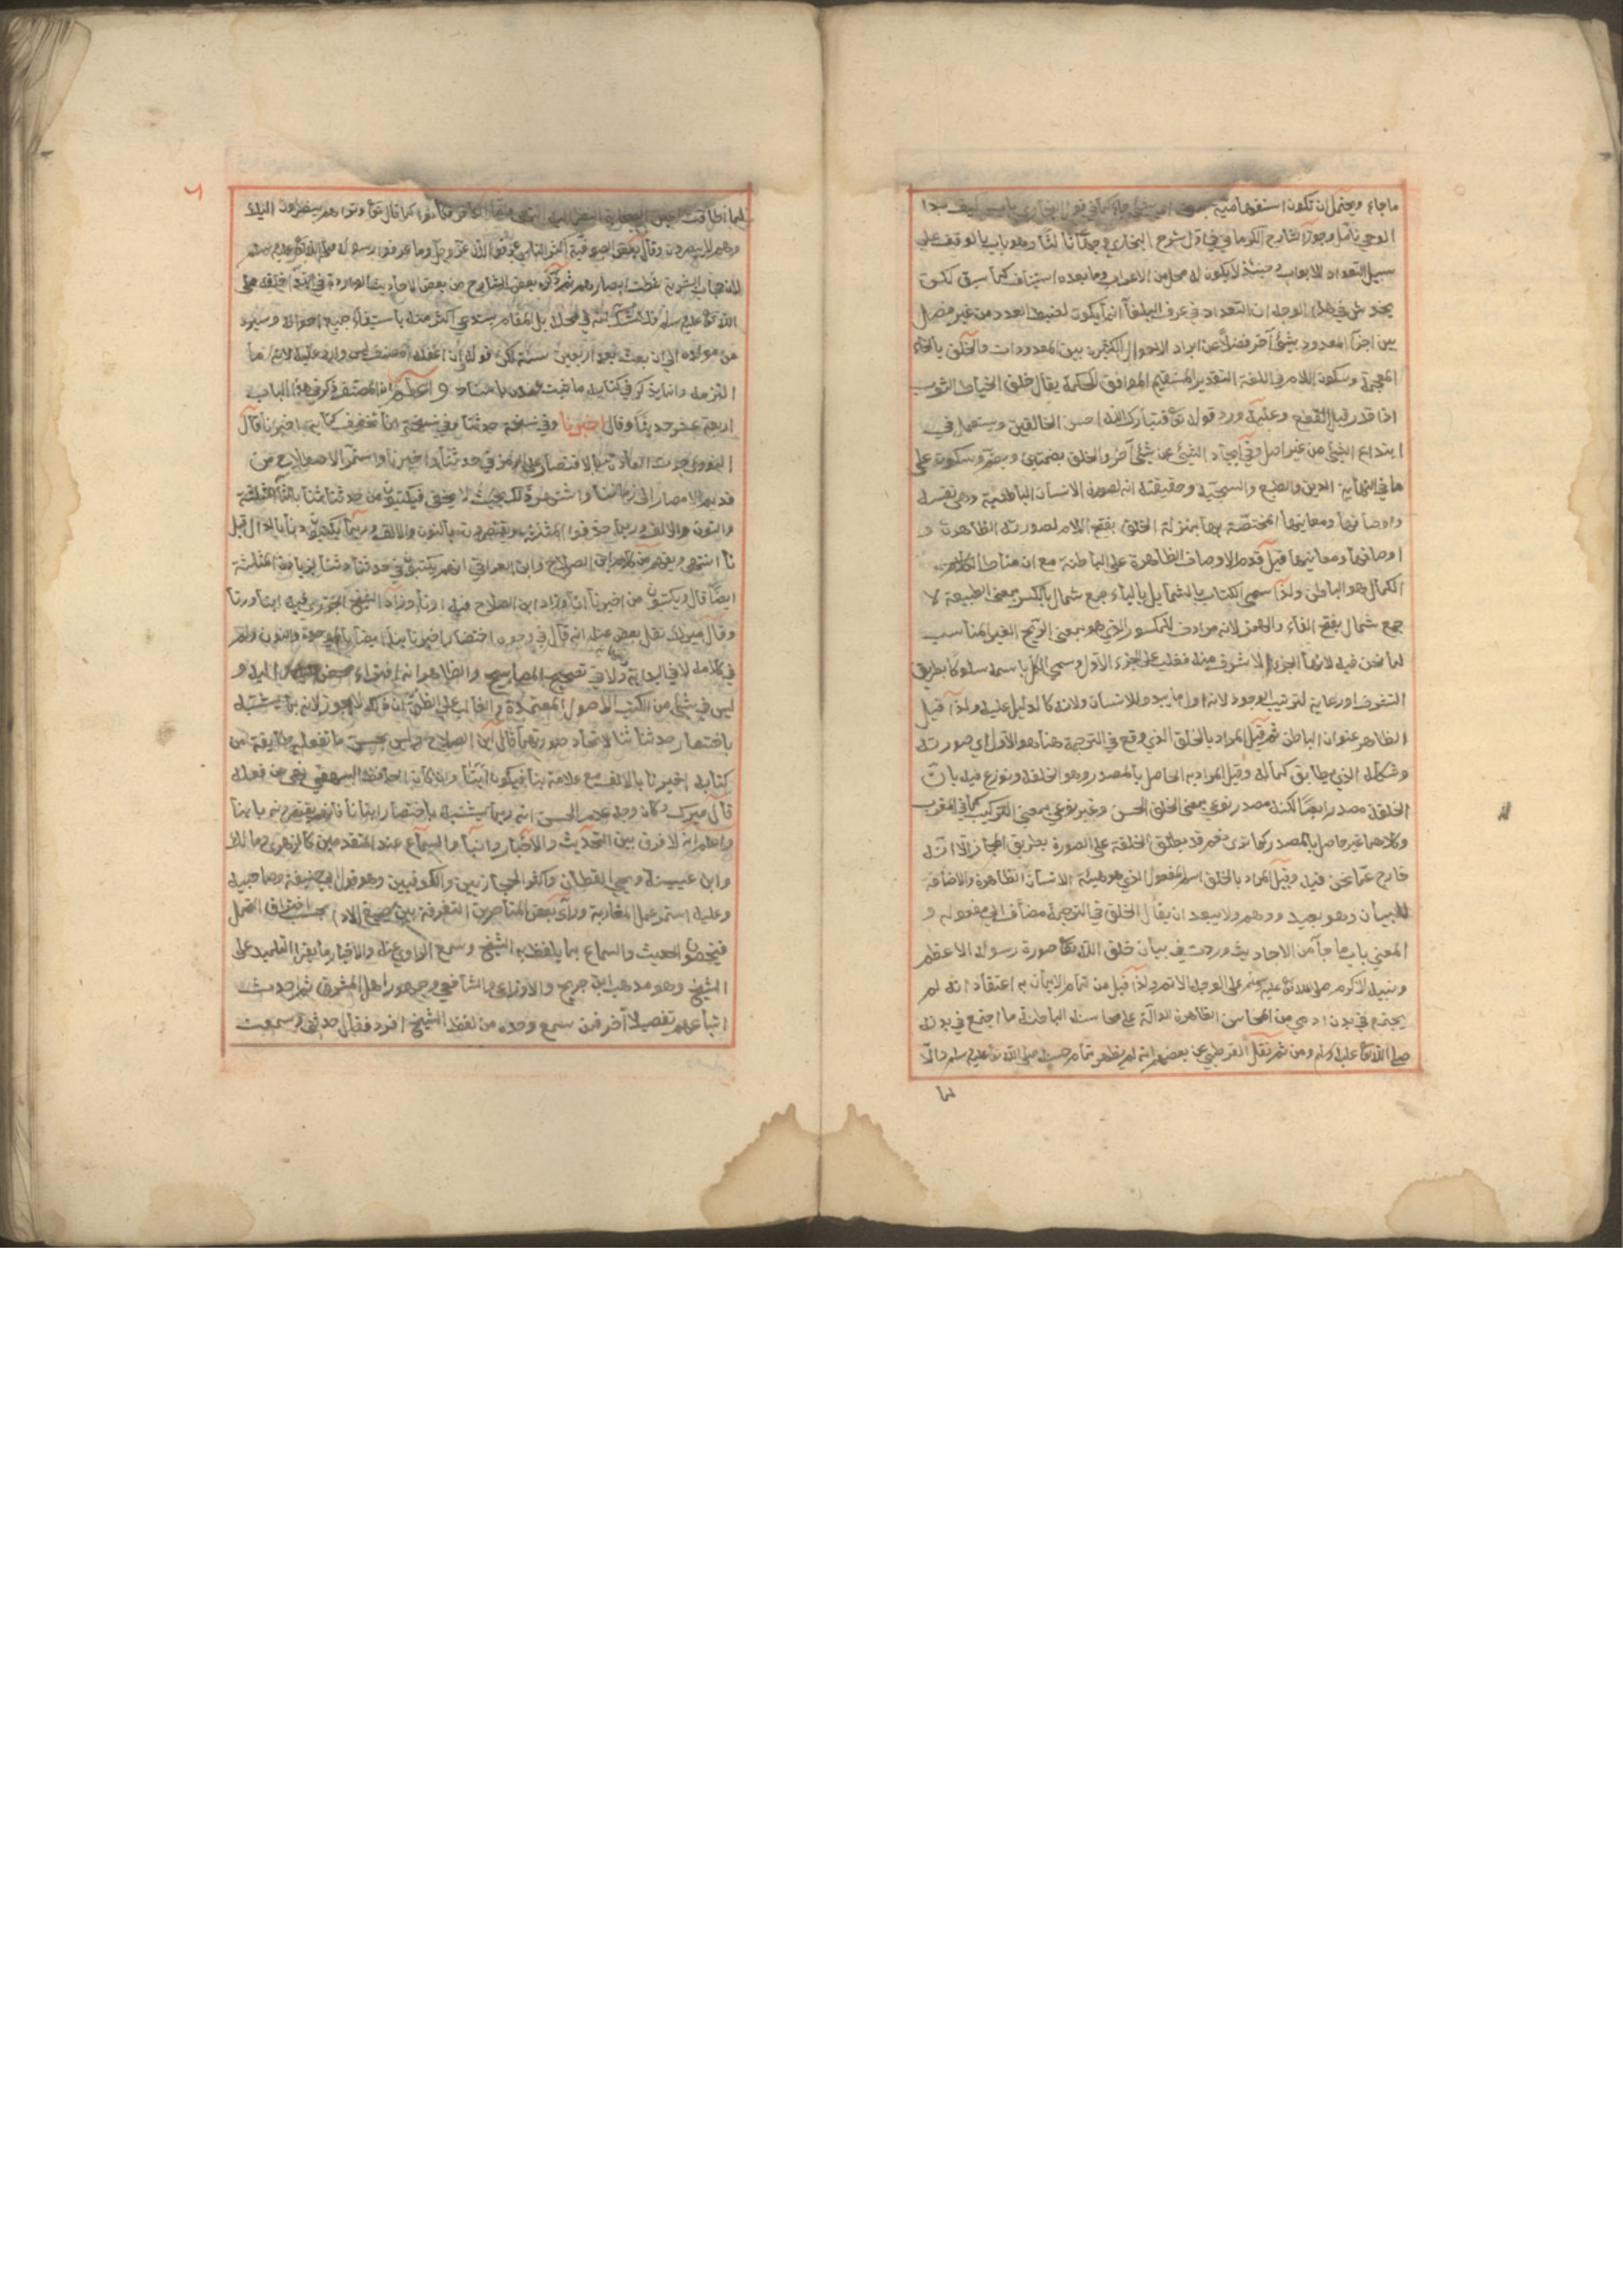 ما جاء ويحتمل ان تكون استفهامية بمعنى اي شئ جاء كما في قول البخاري باب كيف بدا
الوحي تامل وجوز الشارح الكرماني في اول شرح البخاري وجها ثالثا وهو باب بالوقف على
سبيل التعداد للابواب وحينئذ لا يكون له محل من الاعراب وما بعده استيناف كما سبق لكن
يخدش في هذا الوجه ان التعداد في عرف البلغاء انما يكون لضبط العدد من غير فصل
بين اجزاء المعدود بشئ آخر فضلا عن ايراد الاحوال الكثيرة بين المعدودات والخلق بالخاء
المعجمة وسكون اللام في اللغة التقدير المستقيم الموافق للحكمة يقال خلق الخياط الثوب
اذا قدر قبل القطع وعليه ورد قوله تع فتبارك الله احسن الخالقين ويستعمل في
ابتداع الشئ من غير اصل وفي ايجاد الشئ عن شئ آخر والخلق بضمتين وبضم وسكون على
ما في النهاية الدين والطبع والسجية وحقيقته انه لصورة الانسان الباطنية وهي نفسه
واوصافها ومعانيها المختصة بها بمنزلة الخلق بفتح اللام لصورته الظاهرة و
اوصافها ومعانيها قيل قدم الاوصاف الظاهرة على الباطنة مع ان مناط
الكمال هو الباطن ولذا سمي الكتاب بالشمايل بالياء جمع شمال بالكسر بمعنى الطبيعة لا
جمع شمال بفتح الفاء والهمز لانه مرادف للمكسور الذي هو بمعنى الريح الغير المناسب
لما نحن فيه لانها الجزء الاشرف منه فغلب على الجزء الاول وسمي الكل باسمه سلوكا بطريق
الترقي او رعاية لترتيب الوجود لانه اول ما يبدو للانسان ولانه كالدليل عليه ولذا قيل
الظاهر عنوان الباطن ثم قيل المراد بالخلق الذي وقع في الترجمة هنا هو الاول اي صورته
وشكله الذي يطابق كماله وقيل المراد به الحاصل بالمصدر وهو الخلقة ونوزع فيه بان
الخلقة مصدر ايضا لكنه مصدر نوعي بمعنى الخلق الحسن وغير نوعي بمعنى التركيب كما في المغرب
وكلاهما غير حاصل بالمصدر كما ترى نعم قد يطلق الخلقة على الصورة بطريق المجاز الا انه
خارج عما نحن فيه وقيل المراد بالخلق اسم المفعول الذي هو هيئة الانسان الظاهرة والاضافة
للبيان وهو بعيد ووهم ولا يبعد ان يقال الخلق في الترجمة مضاف الى مفعوله و
المعنى باب ما جاء من الاحاديث وردت في بيان خلق الله تعا صورة رسوله الاعظم
ونبيه الاكرم صلى الله تع عليه وسلم على الوجه الاتم ولذا قيل من تمام الايمان به اعتقاد انه لم
يجتمع في بدن ادمي من المحاسن الظاهرة الدالة على محاسنه الباطنة ما اجتمع في بدنه
صلى الله تعا عليه وسلم ومن ثم نقل القرطبي عن بعضهم انه لم يظهر تمام حسنه صلى الله تع عليه وسلم والا
لما
لما اطاقت اعين الصحابة النظر اليه كما قال تع وتراهم ينظرون اليك
وهم لا يبصرون وقال بعض الصوفية اكثر الناس عرفوا الله عز وجل وما عرفوا رسوله صلى الله تع عليه وسلم
لان حجاب البشرية غطت ابصارهم ثم ذكره بعض الشارح من بعض الاحاديث الواردة في خلقه صلى
الله تع عليه وسلم فلا شك انه في محله بل المقام يستدعي اكثر منه باستيفاء جميع احواله وسيره
من مولده الى ان بعث بعد اربعين سنة لكن قوله ان اغفله المصنف ليس وارد عليه لانه ما
التزمه وانما يذكر في كتابه ما ثبت عنده باسناده واعلم ان المصنف ذكر في هذا الباب
اربعة عشر حديثا وقال اخبرنا وفي نسخة حدثنا وفي نسخة انا مخفف كتابة اخبرنا قال
النووي جرت العادة بالاقتصار على الرمز في حدثنا واخبرنا واستمر الاصطلاح من
قديم الامصار الى زماننا واشتهر ذلك بحيث لا يخفى فيكتبون من حدثنا ثنا بالثاء المثلثة
والنون والالف وربما حذفوا المثلثة ويقتصرون بالنون والالف وربما يكتبون دنا بالدال قبل
نا انتهى ويفهم من كلام ابن الصلاح وابن العراقي انهم يكتبون في حدثنا دثنا بزيادة المثلثة
ايضا قال ويكتبون من اخبرنا انا وزاد ابن الصلاح فيه ارنا وزاد الشيخ الجزري فيه ابنا ورنا
وقال ميرك نقل بعض عنه انه قال في وجوه اختصار اخبرنا بنا ايضا بالموحدة والنون ولم
في كلامه لا في البداية ولا في تصحيح المصابيح والظاهر انه افتراء عليه و
ليس في شئ من الكتب الاصول المعتمدة والغالب على الظن ان ذلك لا يجوز لانه يشتبه
باختصار حدثنا ثنا لاتحاد صورتهما قال ابن الصلاح وليس بحسن ما تفعله طايفة من
كتابة اخبرنا بالالف مع علامة بنا فيكون ابنا وان كان الحافظ البيهقي ممن فعله
قال ميرك وكان وجه عدم الحسن انه ربما يشتبه باختصار انبانا فانهم يختصرونه بابنا
واعلم انه لا فرق بين التحديث والاخبار والانباء والسماع عند المتقدمين كالزهري ومالك
وابن عيينة ويحيى القطان واكثر الحجازيين والكوفيين وهو قول ابي حنيفة وصاحبيه
وعليه استمر عمل المغاربة وراى بعض المتاخرين التفرقة بين صيغ الاداء بحسب افتراق التحمل
فيخصون الحديث والسماع بما يلفظ به الشيخ وسمع الراوي عنه والاخبار ما يقرا التلميذ على
الشيخ وهو مذهب ابن جريج والاوزاعي والشافعي وجمهور اهل المشرق ثم احدث
اتباعهم تفصيلا آخر فمن سمع وحده من لفظ الشيخ افرد فقال حدثني وسمعت